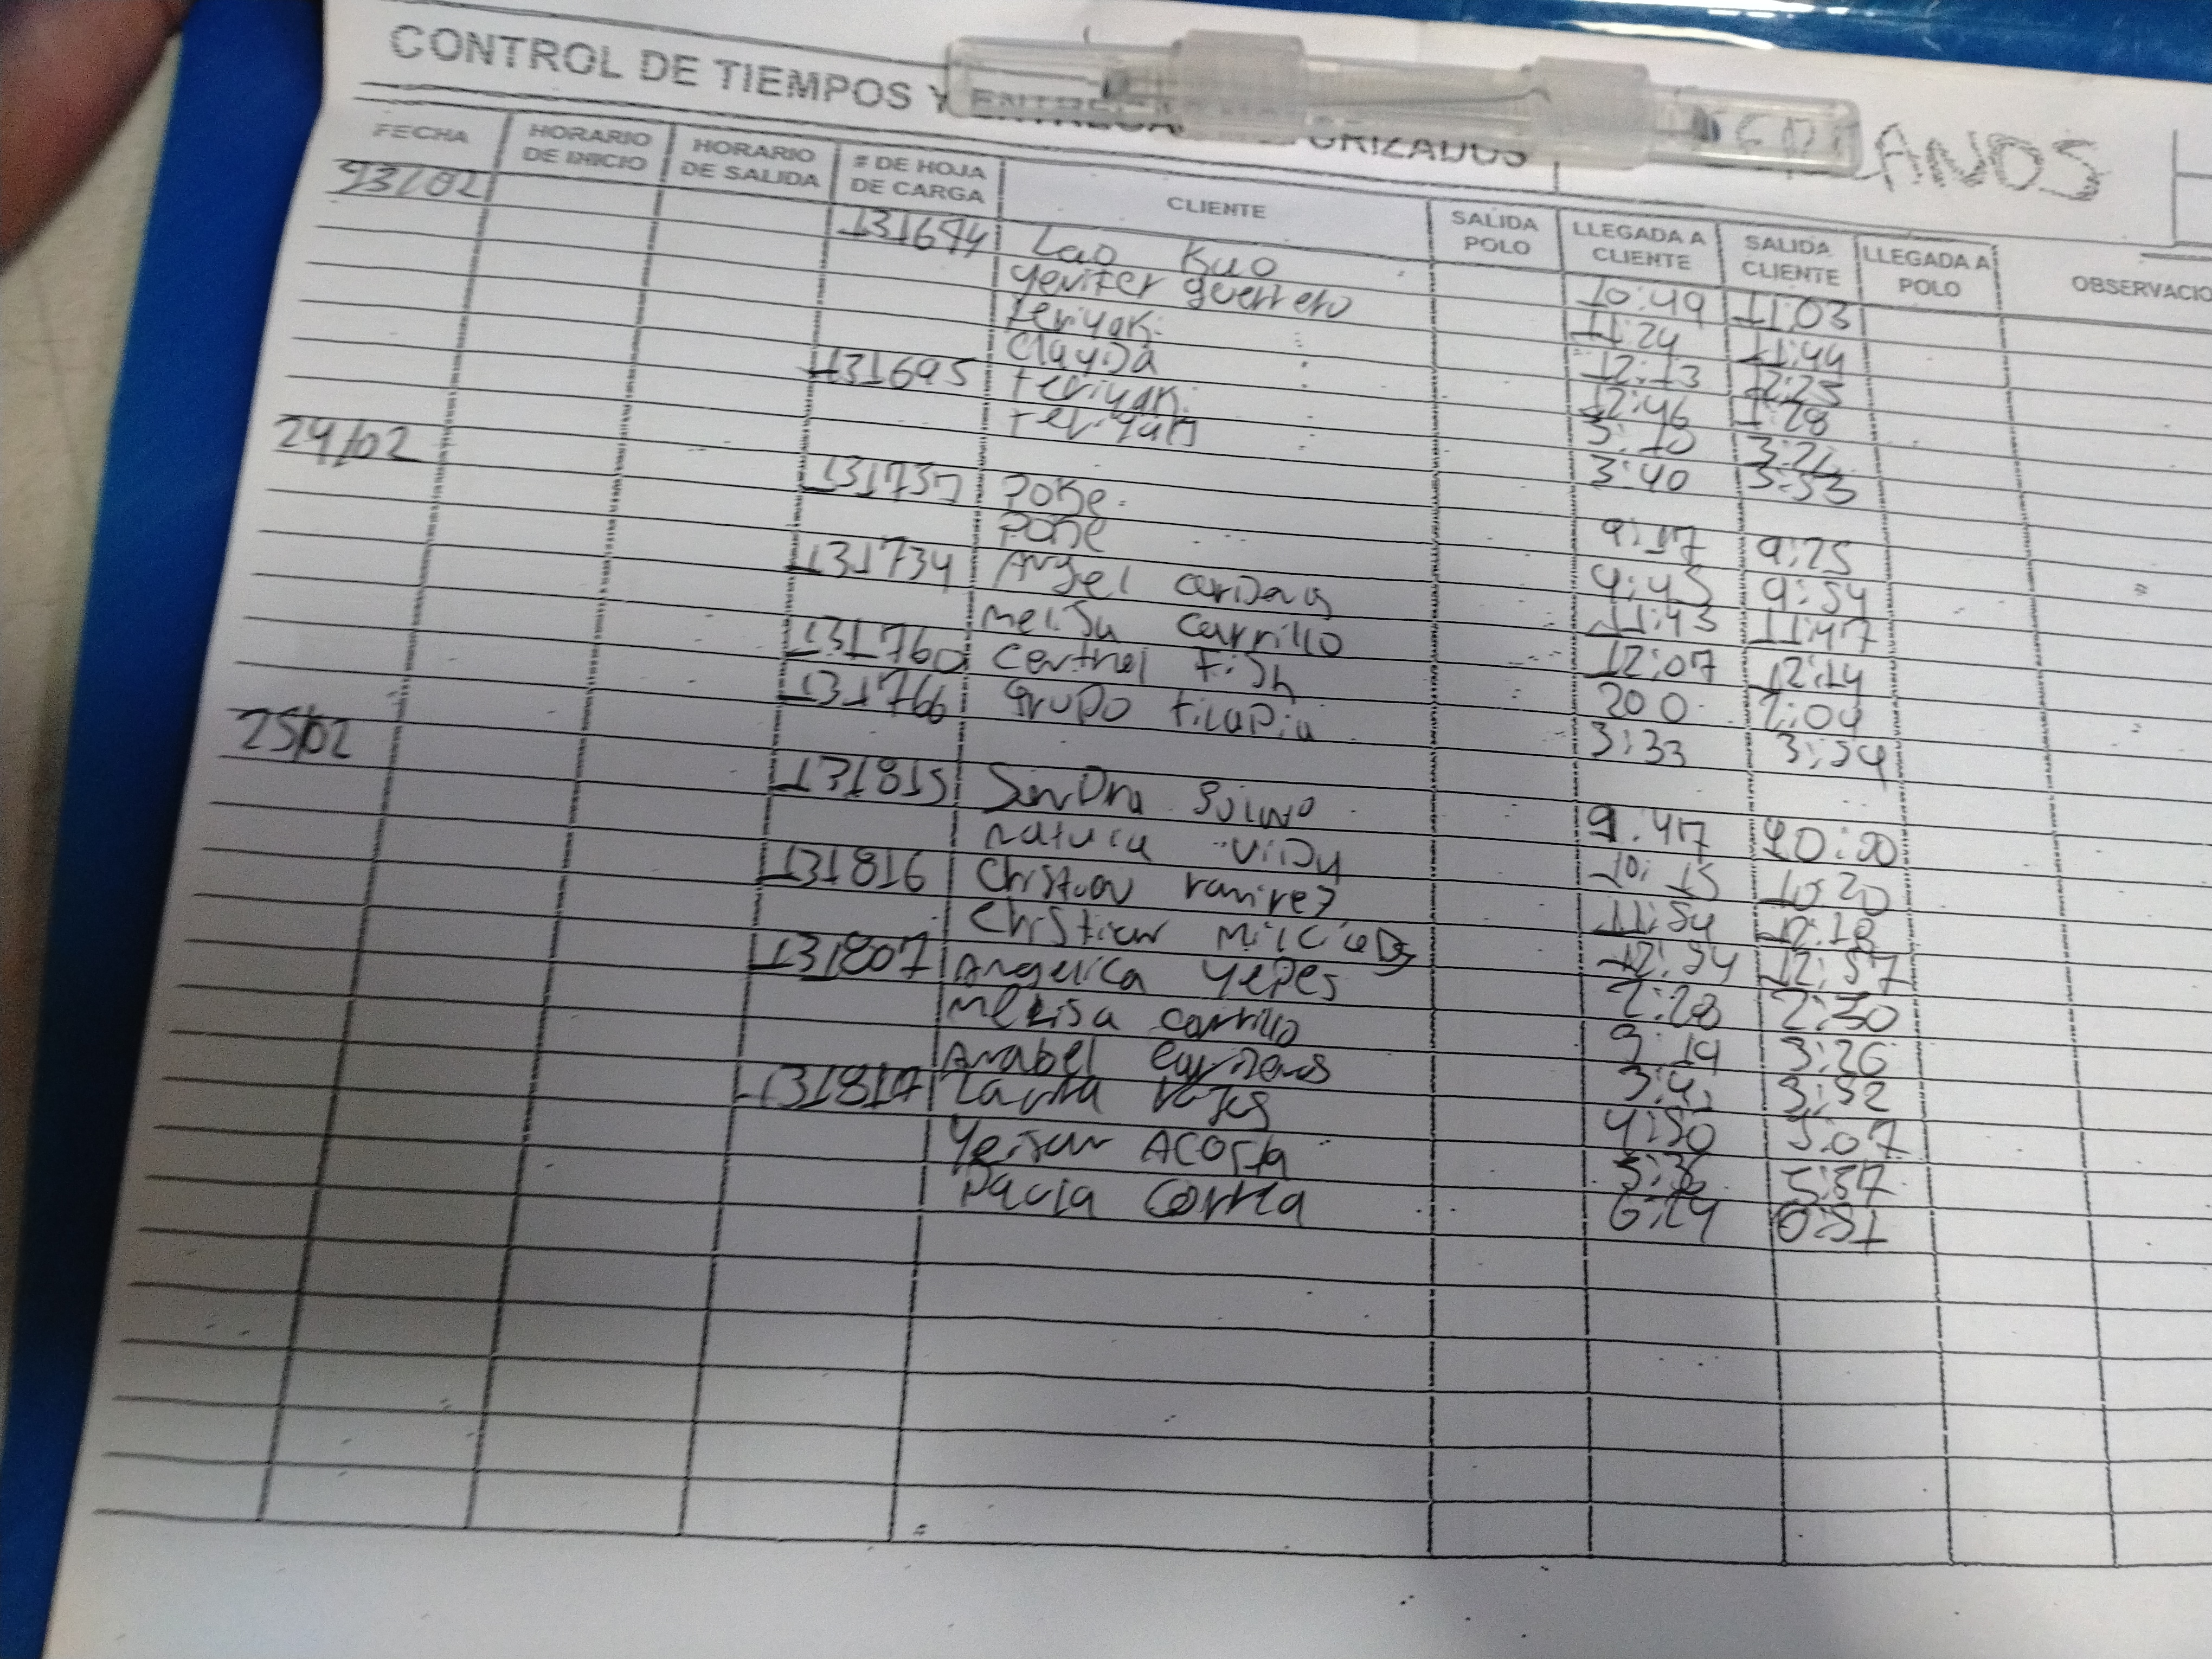 CONTROL DE TIEMPOS Y ENTREGA ORIZADOS ANOS
FECHA HORARIO DE INICIO HORARIO DE SALIDA # DE HOJA DE CARGA CLIENTE SALIDA POLO LLEGADA A CLIENTE SALIDA CLIENTE LLEGADA A POLO OBSERVACIO
23/02
131694 Lao Kuo 10:49 11:03
Yenifer guerrero 11:24 11:44
teriyaki 12:13 12:25
Clauda 12:46 1:28
131695 teriyaki 3:10 3:21
teriyaki 3:40 3:53
24/02
131737 Poke 9:17 9:25
Poke 9:45 9:54
131734 Angel cardenas 11:43 11:47
melisa carrillo 12:07 12:14
131760 central fish 200 2:04
131766 grupo tilapia 3:33 3:54
25/02
131815 Sandra 9:47 10:00
natuca 10:15 10:20
131816 Christian ramirez 11:54 12:18
Christian 12:54 12:57
131807 Angelica Yepes 2:28 2:30
Melisa carrillo 3:19 3:26
Anabel cardenas 3:52
131817 Laura 4:50 5:07
Yeison ACOSTA 5:36 5:37
Paula Correa 6:24 6:31